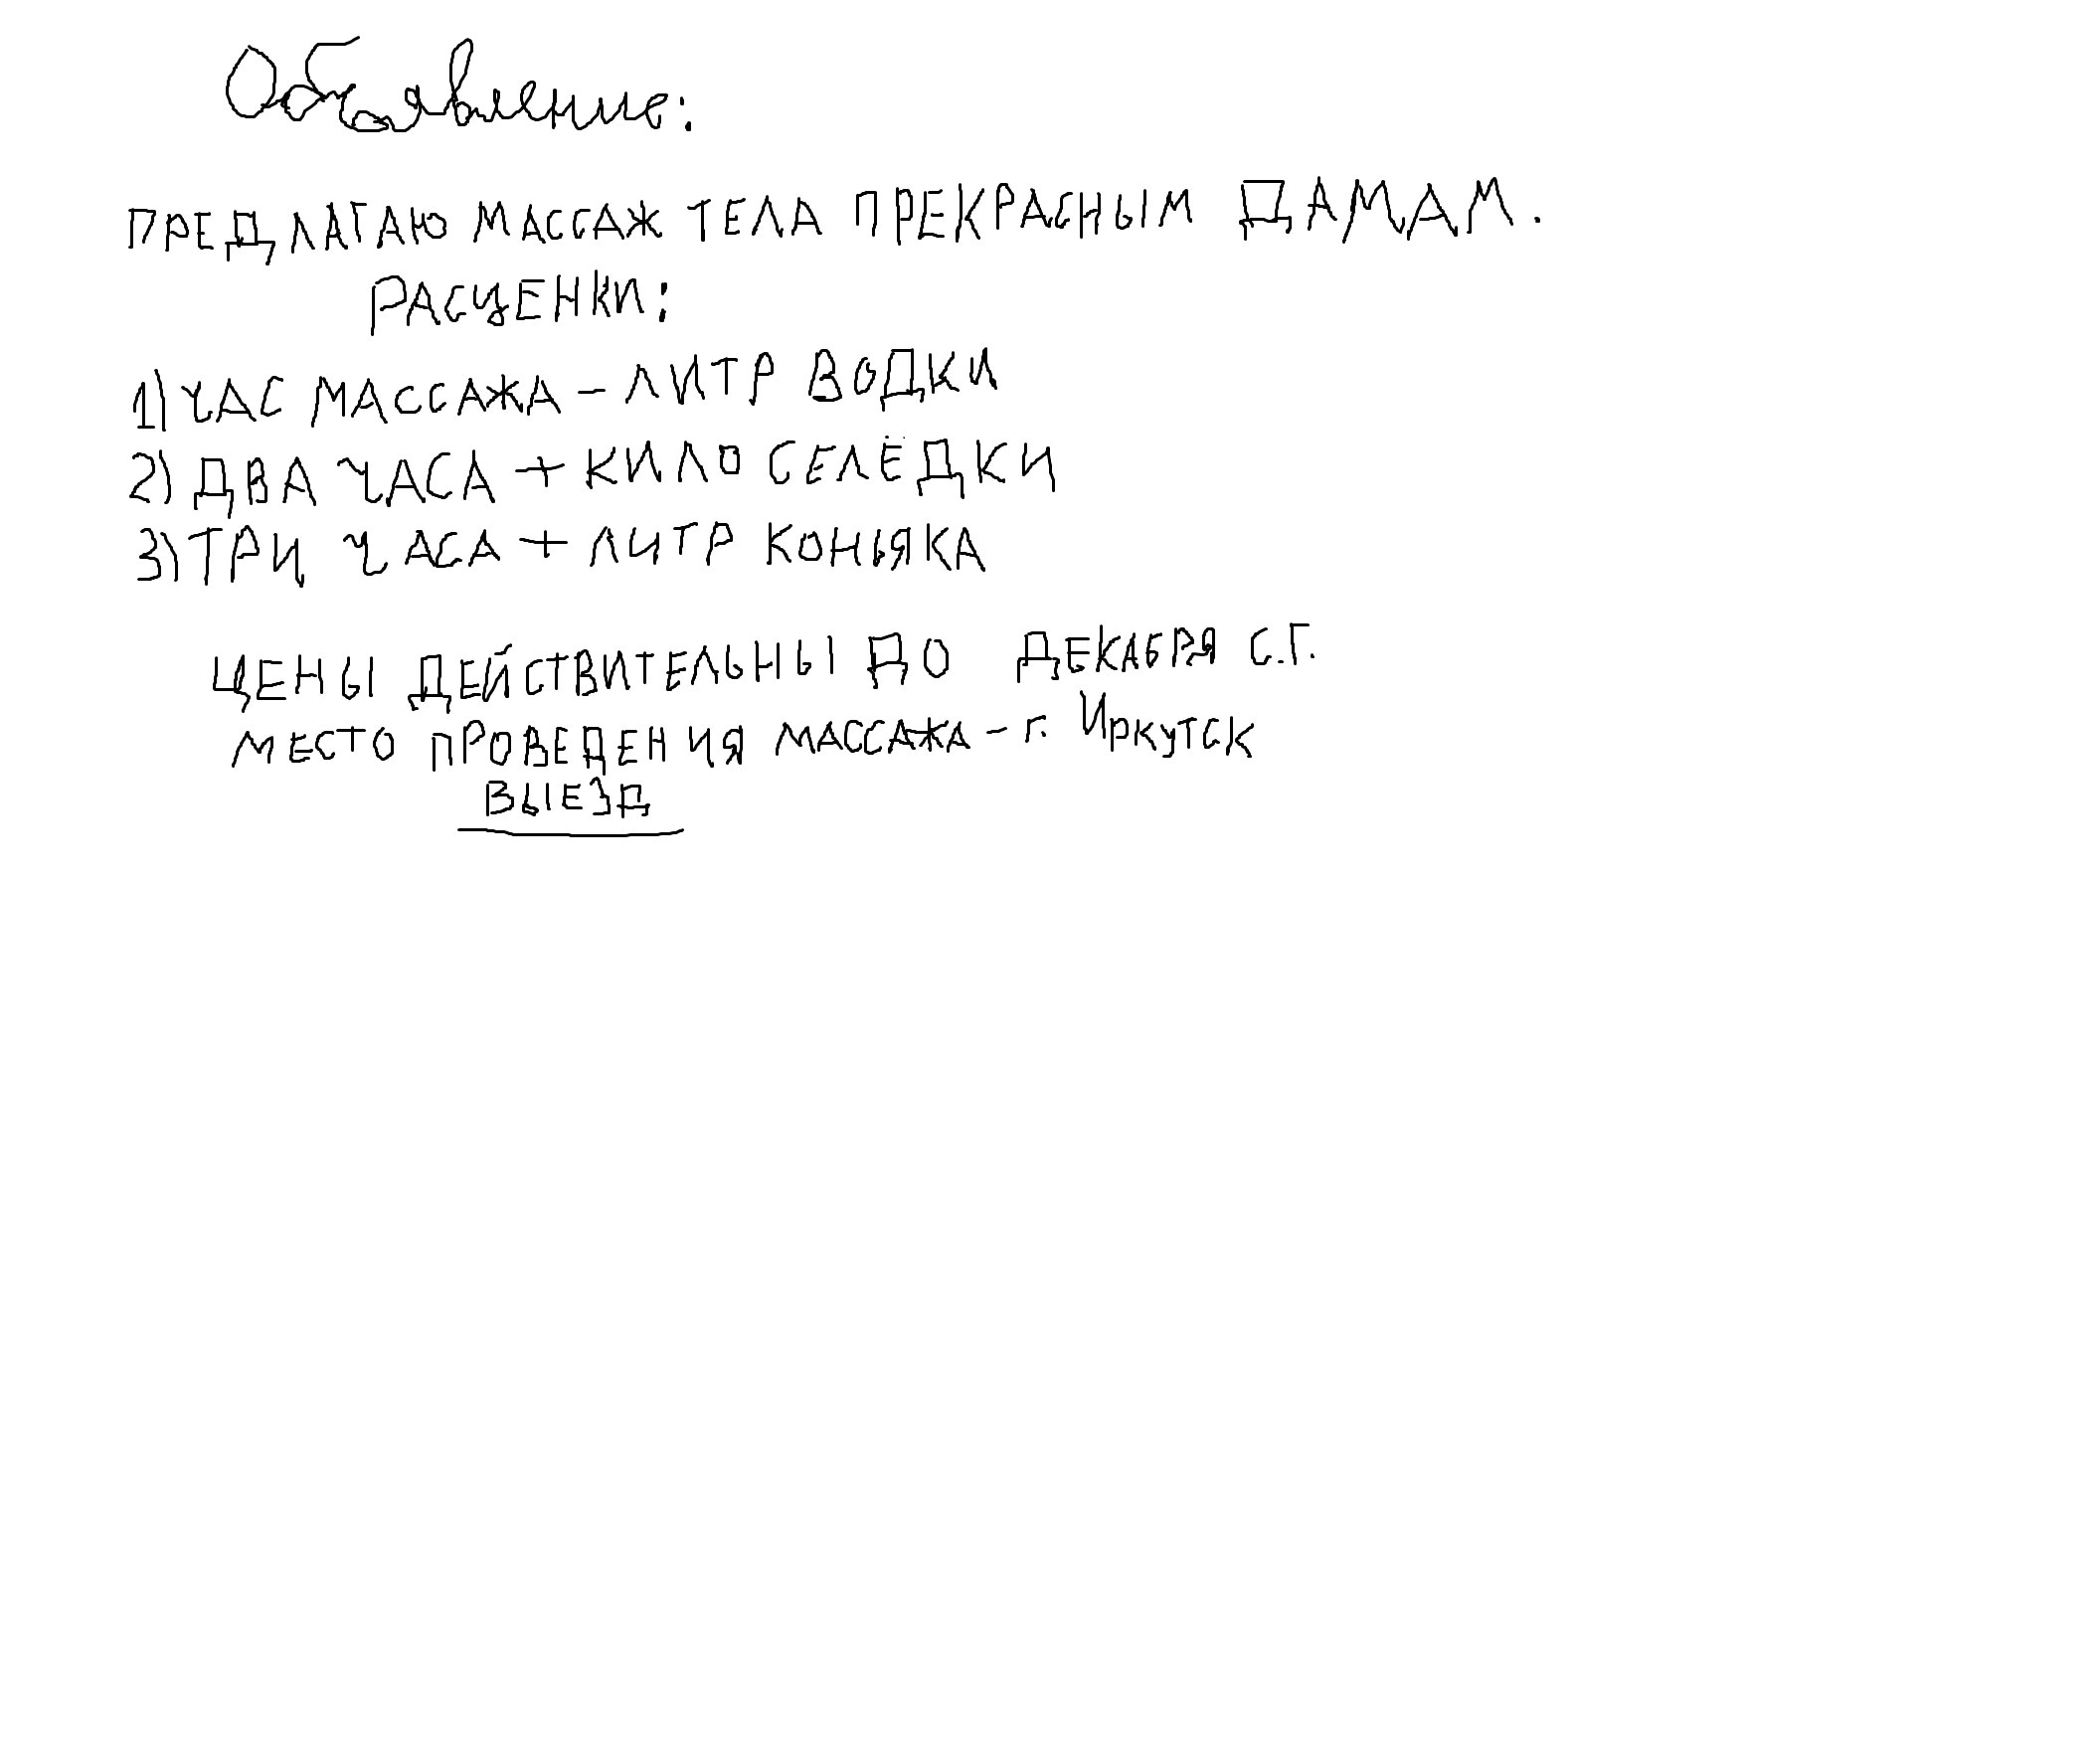 Объявление:
ПРЕДЛАГАЮ МАССАЖ ТЕЛА ПРЕКРАСНЫМ ДАМАМ.
РАСЦЕНКИ:
1) ЧАС МАССАЖА - ЛИТР ВОДКИ
2) ДВА ЧАСА + КИЛО СЕЛЁДКИ
3) ТРИ ЧАСА + ЛИТР КОНЬЯКА
ЦЕНЫ ДЕЙСТВИТЕЛЬНЫ ДО ДЕКАБРЯ С.Г.
МЕСТО ПРОВЕДЕНИЯ МАССАЖА - г. Иркутск
ВЫЕЗД